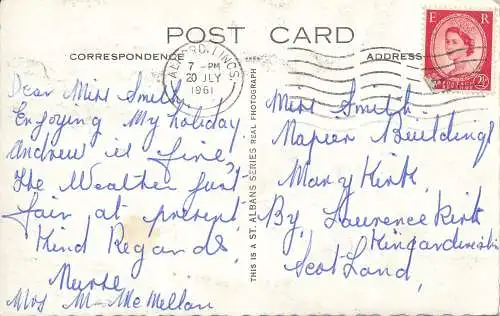 POST CARD
CORRESPONDENCE
ADDRESS
ALFORD. LINCS
7 - PM
20 JLY
1961
E R
POSTAGE
2½D
Dear Miss Smith,
Enjoying My holiday
Andrew is fine,
The Weather just
fair at present
Kind Regards,
Nurse
Mrs M- McMellan
THIS IS A ST. ALBANS SERIES REAL PHOTOGRAPH
Miss Smith.
Napier Buildings
Mary Kirk.
By, Laurence Kirk
Kingardineshire
Scotland,